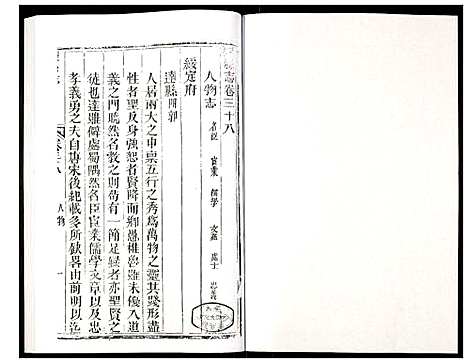 縣志卷三十八
人物志 名臣 宦業 儒學 文苑 處士 忠義
綏定府
達縣附郭
人居兩大之中禀五行之秀爲萬物之靈其踐形盡
性者聖反身強恕者賢降而鄉愚樵魯雖未優入道
義之門聽然名教之則苟有一節足錄者亦聖賢之
徒也達雖僻處蜀隅然名臣宦業儒學文章以及忠
孝義勇之夫自唐宋後紀載多所缺畧由前明以迄
卷三十八 人物 一